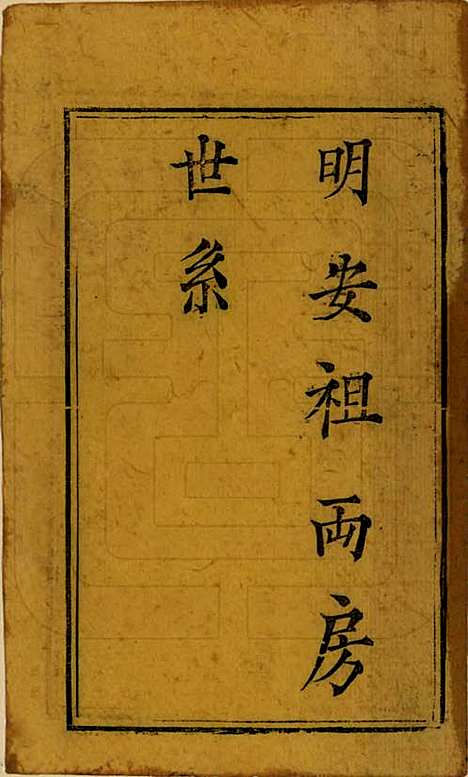 明安祖两房
世系